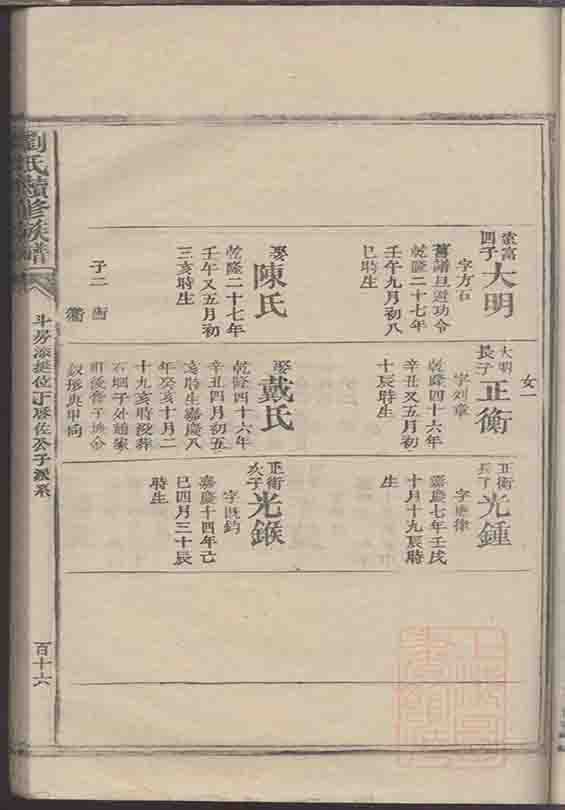 劉氏續修族譜
斗房添挺位丁啟佐公子派系
百十六
女一
四子
大明
字方石
舊譜旦遊功令
乾隆二十七年
壬午九月初八
巳時生
娶
陳氏
乾隆二十七年
壬午又五月初
三亥時生
子二
大明
長子
正衡
字刘章
乾隆四十六年
辛丑又五月初
十辰時生
娶
戴氏
乾隆四十六年
辛丑四月初五
亥時生嘉慶八
年癸亥十月二
十九亥時沒葬
石堌子外通家
正衡
長子
光鍾
字應律
嘉慶七年壬戌
十月十九辰時
生
正衡
次子
光鍭
字既鈞
嘉慶十四年己
巳四月三十辰
時生